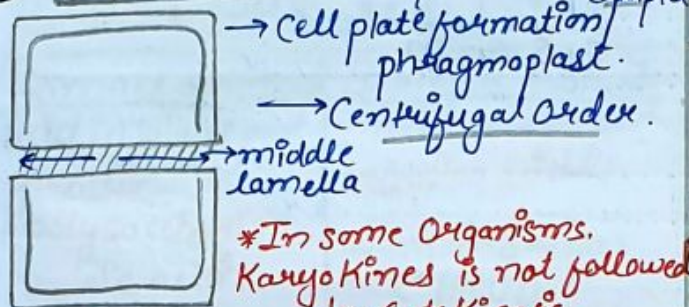 → Cell plate formation/
phragmoplast.
→ Centrifugal order.
→ middle
lamella
*In some Organisms.
KaryoKines is not followed